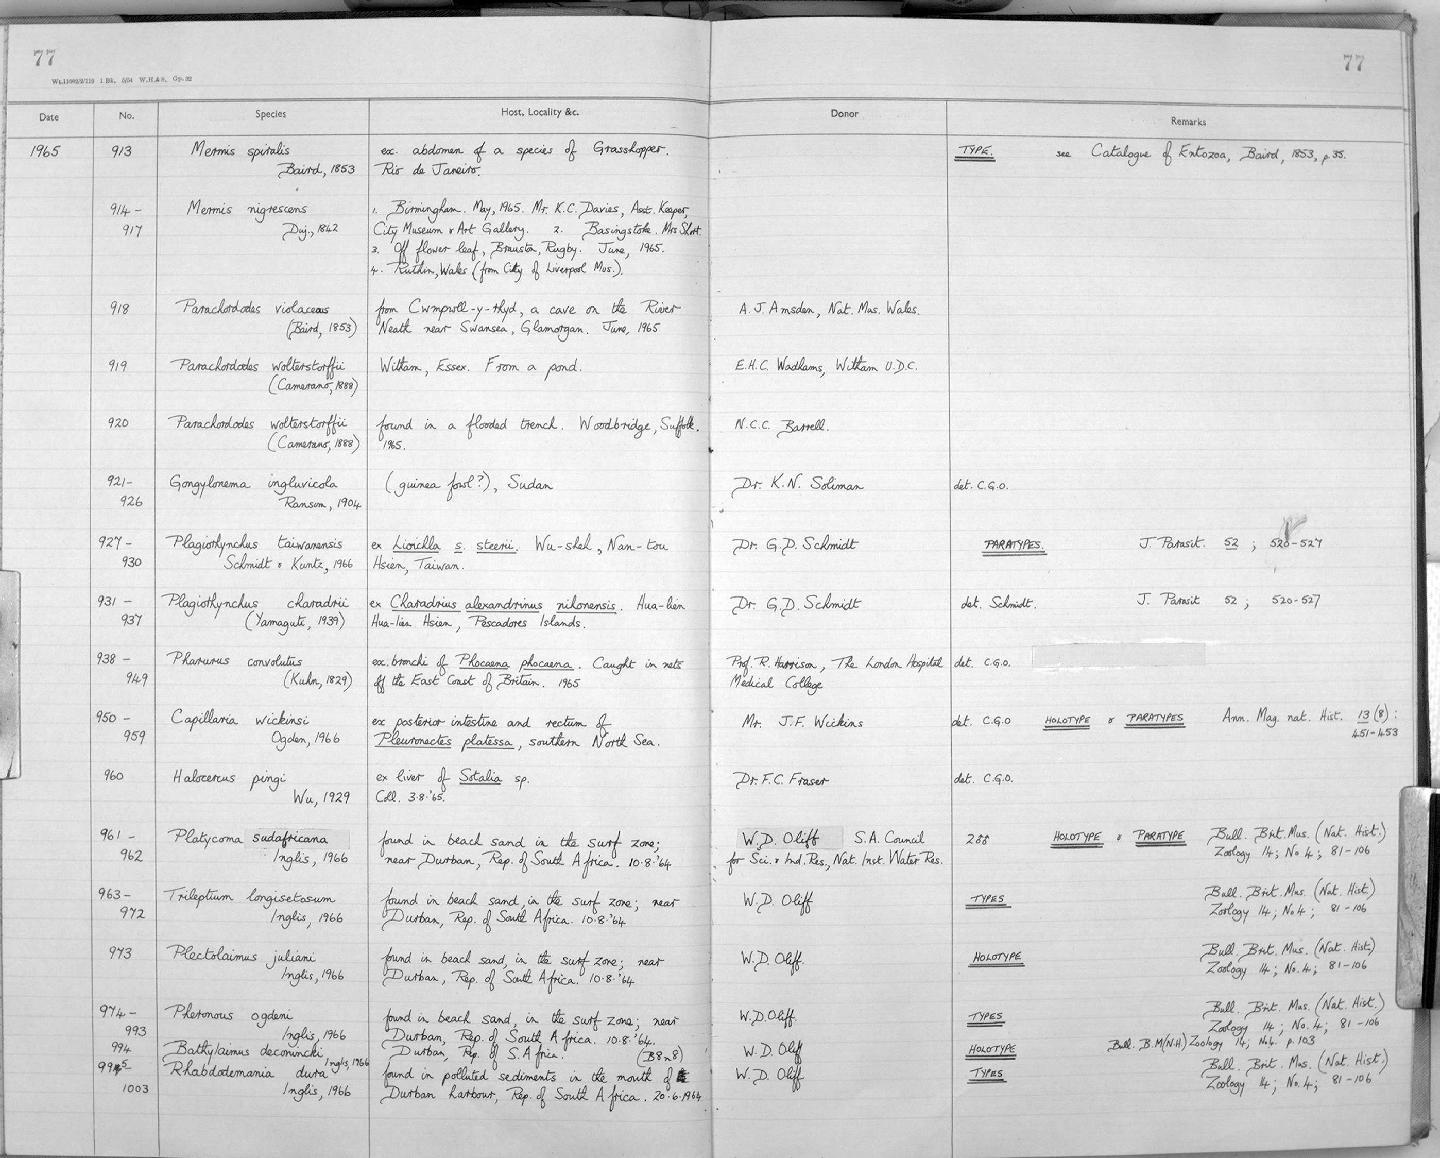 77
77
Wt.11082/2/119 1 Bk. 5/54 W.H.& S. Gp. 32
Date No. Species Host, Locality &c. Donor Remarks
1965 913 Mermis spiralis ex. abdomen of a species of Grasshopper. TYPE. see Catalogue of Entozoa, Baird, 1853, p 35.
Baird, 1853 Rio de Janeiro.
914 - Mermis nigrescens 1. Birmingham. May, 1965. Mr. K.C. Davies, Asst. Keeper,
917 Duj., 1842 City Museum & Art Gallery. 2. Basingstoke. Mrs Short.
3. Off flower leaf, Braunston, Rugby. June, 1965.
4. Ruthin, Wales (from City of Liverpool Mus.).
918 Parachordodes violaceous from Cwmpwll-y-rhyd, a cave on the River A. J. Amsden, Nat. Mus. Wales.
(Baird, 1853) Neath near Swansea, Glamorgan. June, 1965
919 Parachordodes wolterstorffii Witham, Essex. From a pond. E.H.C. Wadhams, Witham U.D.C.
(Camerano, 1888)
920 Parachordodes wolterstorffii found in a flooded trench. Woodbridge, Suffolk. N.C.C. Barrell.
(Camerano, 1888) 1965.
921- Gongylonema ingluvicola (guinea fowl?), Sudan Dr. K.N. Soliman det. C.G.O.
926 Ransom, 1904
927 - Plagiorhynchus taiwanensis ex Liocichla s. steerii. Wu-sheh, Nan-tou Dr. G.D. Schmidt PARATYPES. J. Parasit. 52 ; 520-527
930 Schmidt & Kuntz, 1966 Hsien, Taiwan.
931 - Plagiorhynchus charadrii ex Charadrius alexandrinus nihonensis. Hua-lien Dr. G.D. Schmidt det. Schmidt. J. Parasit 52 ; 520-527
937 (Yamaguti, 1939) Hua-lien Hsien, Pescadores Islands.
938 - Pharurus convolutus ex. bronchi of Phocaena phocaena. Caught in nets Prof. R. Harrison, The London Hospital det. C.G.O.
949 (Kuhn, 1829) off the East Coast of Britain. 1965 Medical College
950 - Capillaria wickinsi ex posterior intestine and rectum of Mr. J.F. Wickins det. C.G.O HOLOTYPE & PARATYPES Ann. Mag. nat. Hist. 13 (8) :
959 Ogden, 1966 Pleuronectes platessa, southern North Sea. 451-453
960 Halocercus pingi ex liver of Sotalia sp. Dr. F.C. Fraser det. C.G.O.
Wu, 1929 Coll. 3.8.'65.
961 - Platycoma sudafricana found in beach sand in the surf zone; W.D. Oliff S.A. Council 2♂♂ HOLOTYPE & PARATYPE Bull. Brit. Mus. (Nat. Hist.)
962 Inglis, 1966 near Durban, Rep. of South Africa. 10.8.'64 for Sci. & Ind. Res., Nat. Inst. Water Res. Zoology 14; No 4; 81-106
963- Trileptium longisetosum found in beach sand, in the surf zone; near W.D. Oliff TYPES Bull. Brit. Mus. (Nat. Hist)
972 Inglis, 1966 Durban, Rep. of South Africa. 10.8.'64 Zoology 14; No.4; 81-106
973 Plectolaimus juliani found in beach sand, in the surf zone; near W.D. Oliff. HOLOTYPE Bull. Brit. Mus. (Nat. Hist)
Inglis, 1966 Durban, Rep. of South Africa. 10.8.'64 Zoology 14; No. 4; 81-106
974 - Pheronous ogdeni found in beach sand, in the surf zone; near W.D. Oliff. TYPES Bull. Brit. Mus. (Nat. Hist.)
993 Inglis, 1966 Durban, Rep. of South Africa. 10.8.'64. Zoology 14; No. 4; 81-106
994 Bathylaimus deconincki Inglis, 1966 Durban, Rep. of S. Africa. (B8n8) W.D. Oliff HOLOTYPE Bull. B.M(N.H) Zoology 14; No4. p.103
995 Rhabdodemania dura found in polluted sediments in the mouth of W.D. Oliff TYPES Bull. Brit. Mus. (Nat. Hist)
1003 Inglis, 1966 Durban harbour, Rep. of South Africa. 20.6.1964 Zoology 14; No. 4; 81-106